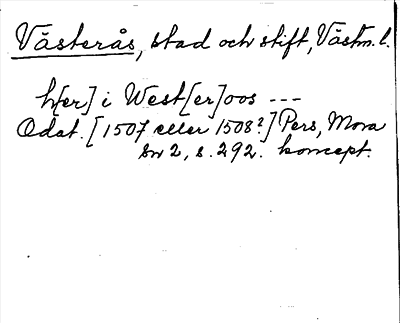 Västerås, stad och stift, Västm. l.
h[er] i West[er]oos ---
Odat. [1507 eller 1508?] Pers, Mora
Sn 2, s. 292. koncept.